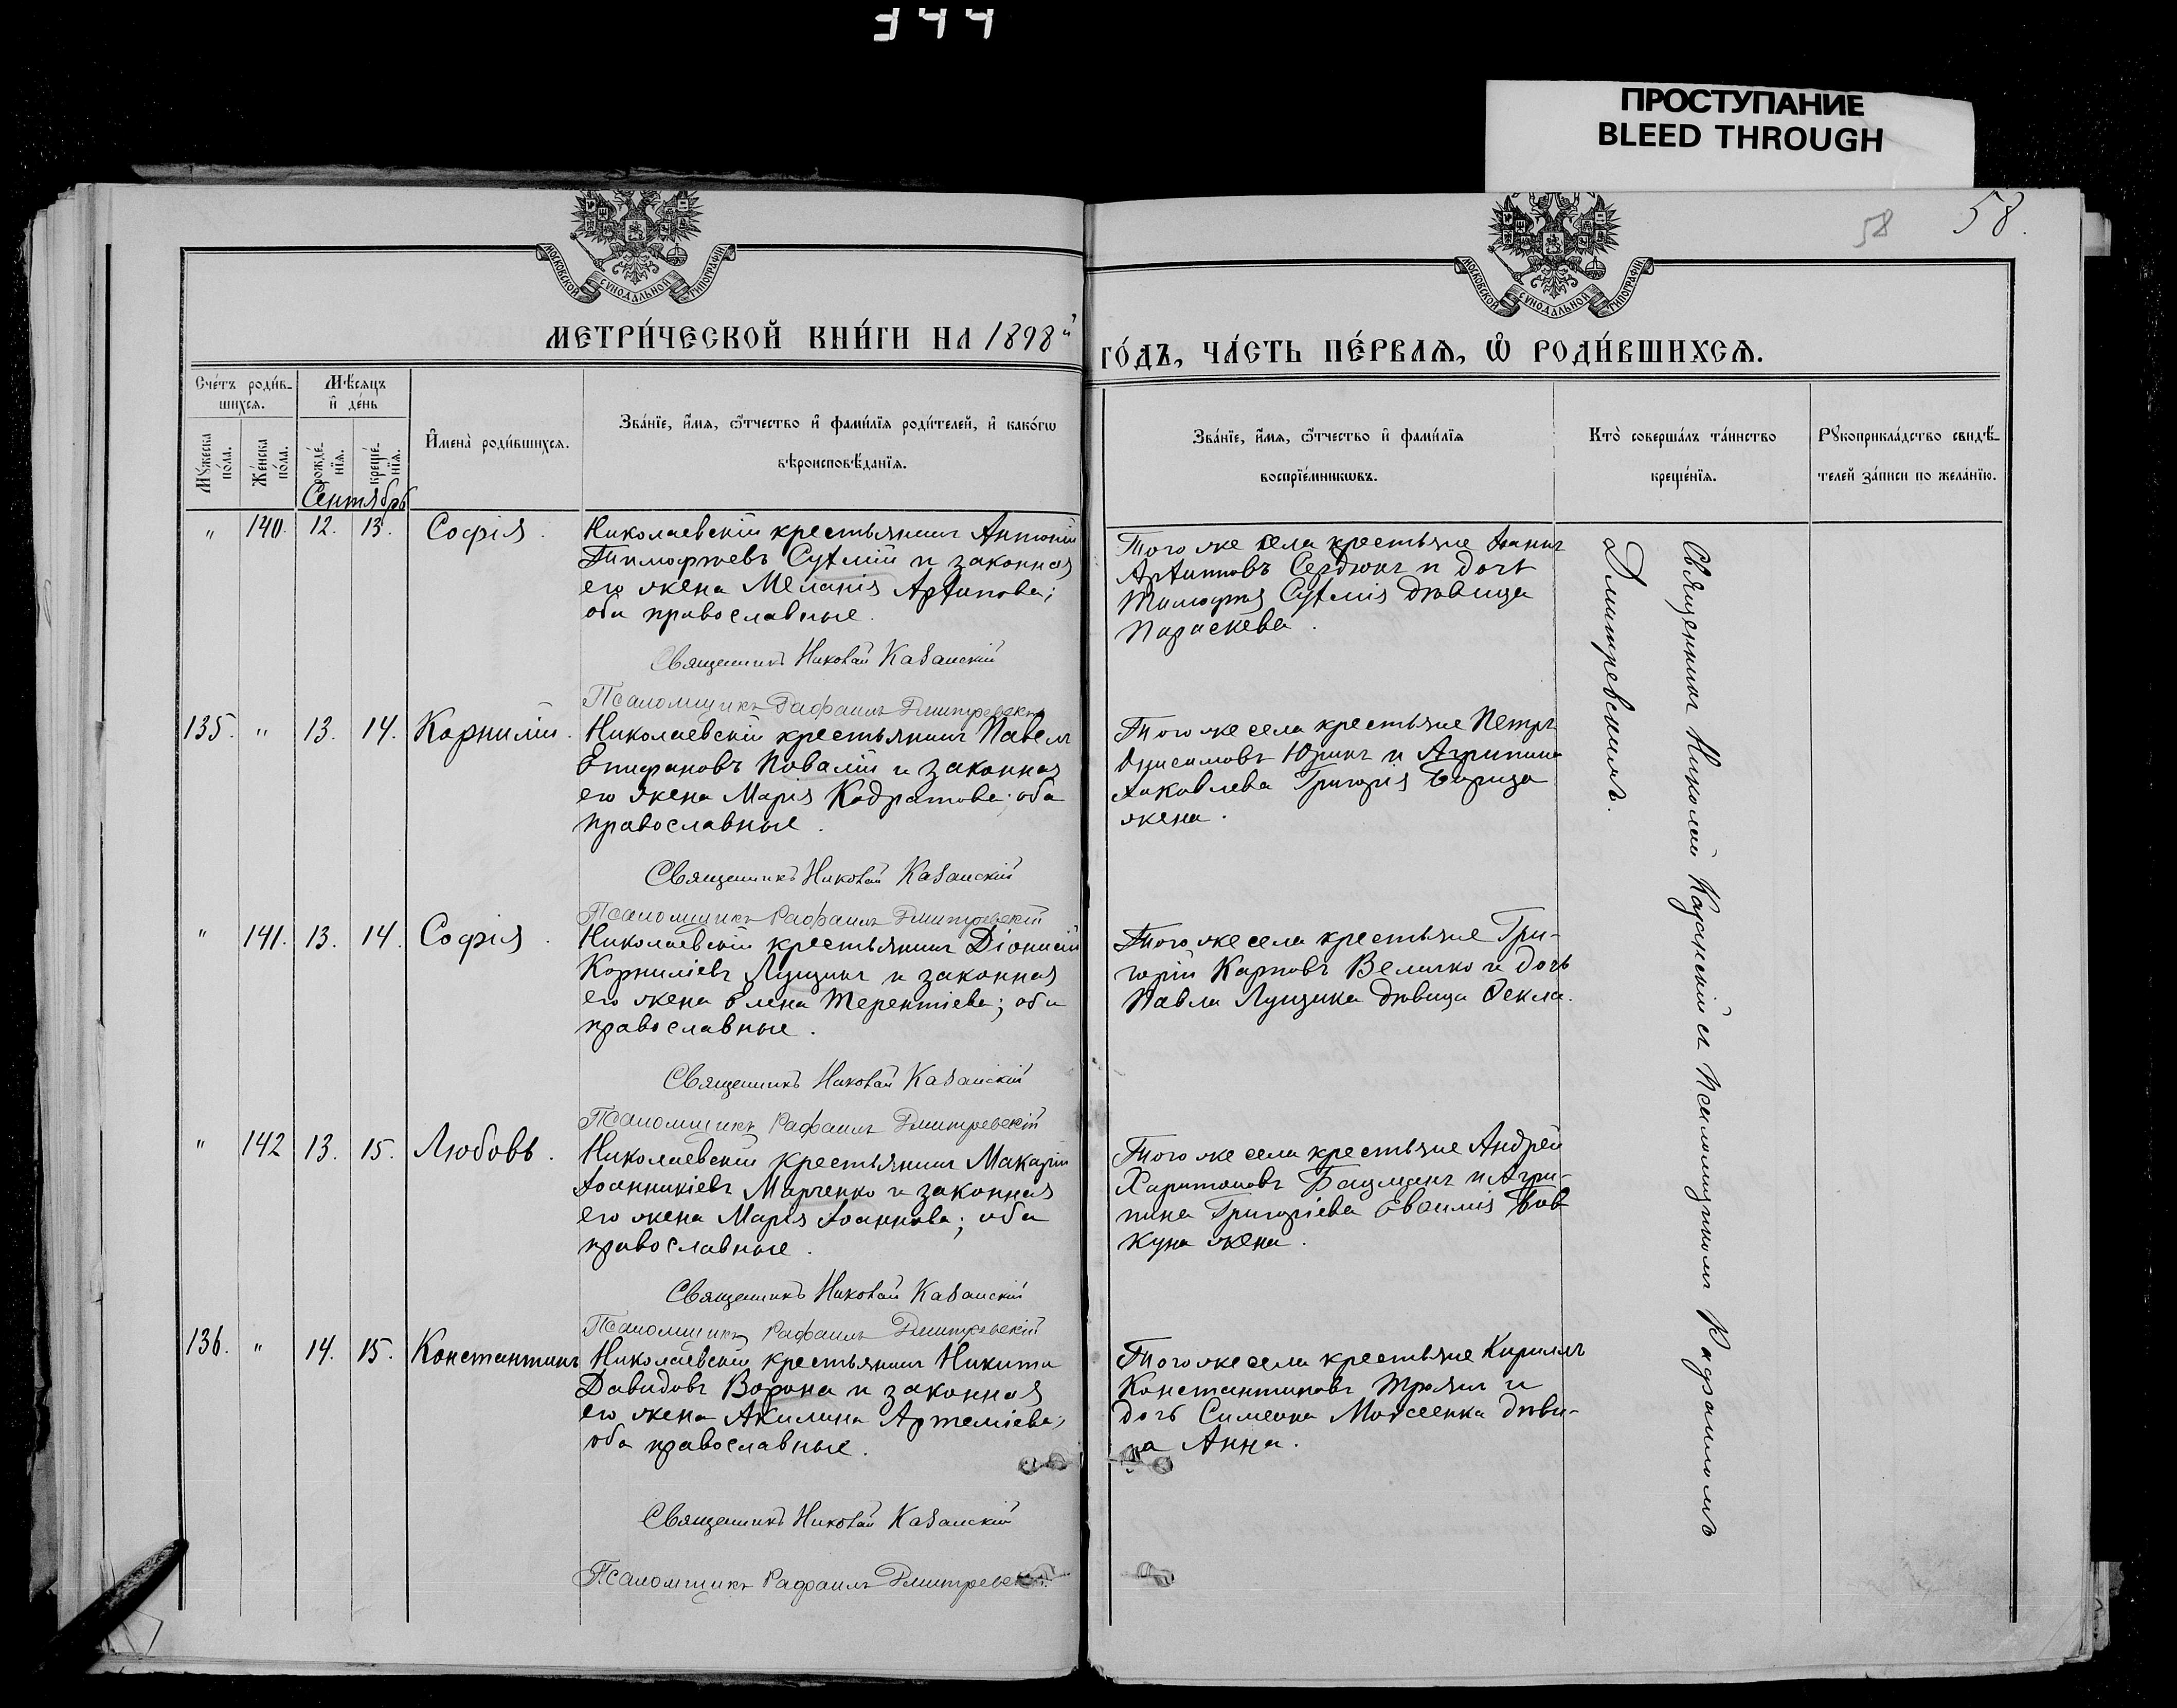 344
ПРОСТУПАНИЕ
BLEED THROUGH
58 58.
МОСКОВСКОЙ СѴНОДАЛЬНОЙ ТИПОГРАФІИ
МОСКОВСКОЙ СѴНОДАЛЬНОЙ ТИПОГРАФІИ
МЕТРИ́ЧЕСКОЙ КНИ́ГИ НА 1898й
ГО́ДЪ, ЧА́СТЬ ПЕ́РВАѦ, Ѽ РОДИ́ВШИХСѦ.
Сче́тъ роди́в-
шихсѧ.
Мꙋ́жеска по́ла.
Же́нска по́ла.
Мѣ́сѧцъ
и҆ де́нь
рожде́-нїѧ.
креще́-нїѧ.
И҆мена̀ роди́вшихсѧ.
Зва́нїе, и҆́мѧ, ѻ҆́тчество и҆ фами́лїѧ роди́телей, и҆ како́гѡ
вѣроисповѣ́данїѧ.
Зва́нїе, и҆́мѧ, ѻ҆́тчество и҆ фами́лїѧ
воспрїе́мникѡвъ.
Кто̀ соверша́лъ та́инство
креще́нїѧ.
Рꙋкоприкла́дство свидѣ́-
телей за́писи по жела́нїю.
Сентябрь
" 140. 12. 13. Софія.
Николаевскій крестьянинъ Антоній
Тимофѣевъ и законная
его жена Меланія Архипова;
оба православные.
Священникъ Николай Казанскій
Псаломщикъ Рафаилъ Дмитревскій
Того же села крестьяне Іоаннъ
Архиповъ Сердюкъ и дочь
Тимофея дѣвица
Параскева.
135. " 13. 14. Корнилій.
Николаевскій крестьянинъ Павелъ
Епифановъ Повалій и законная
его жена Марія Кодратова; оба
православные.
Священникъ Николай Казанскій
Псаломщикъ Рафаилъ Дмитревскій
Того же села крестьяне Петръ
Анисимовъ и Агрипина
Іаковлева Григорія
жена.
" 141. 13. 14. Софія.
Николаевскій крестьянинъ Діонисій
Корниліевъ Лущикъ и законная
его жена Елена Терентіева; оба
православные.
Священникъ Николай Казанскій
Псаломщикъ Рафаилъ Дмитревскій
Того же села крестьяне Гри-
горій Карповъ Величко и дочь
Павла Лущика дѣвица Ѳекла.
" 142 13. 15. Любовь.
Николаевскій крестьянинъ Макарій
Іоанникіевъ Марченко и законная
его жена Марія Іоаннова; оба
православные.
Священникъ Николай Казанскій
Псаломщикъ Рафаилъ Дмитревскій
Того же села крестьяне Андрей
Харитоновъ Бацманъ и Агри-
пина Григоріева Евѳимія Вов
куна жена.
136. " 14. 15. Константинъ
Николаевскій крестьянинъ Никита
Давидовъ Ворона и законная
его жена Акилина Артеміева;
оба православные.
Священникъ Николай Казанскій
Псаломщикъ Рафаилъ Дмитревскій
Того же села крестьяне Кириллъ
Константиновъ Троянъ и
дочь Симеона Моисеенка дѣви-
ца Анна.
Священникъ Николай Казанскій съ Псаломщикомъ Рафаиломъ
Дмитревскимъ.